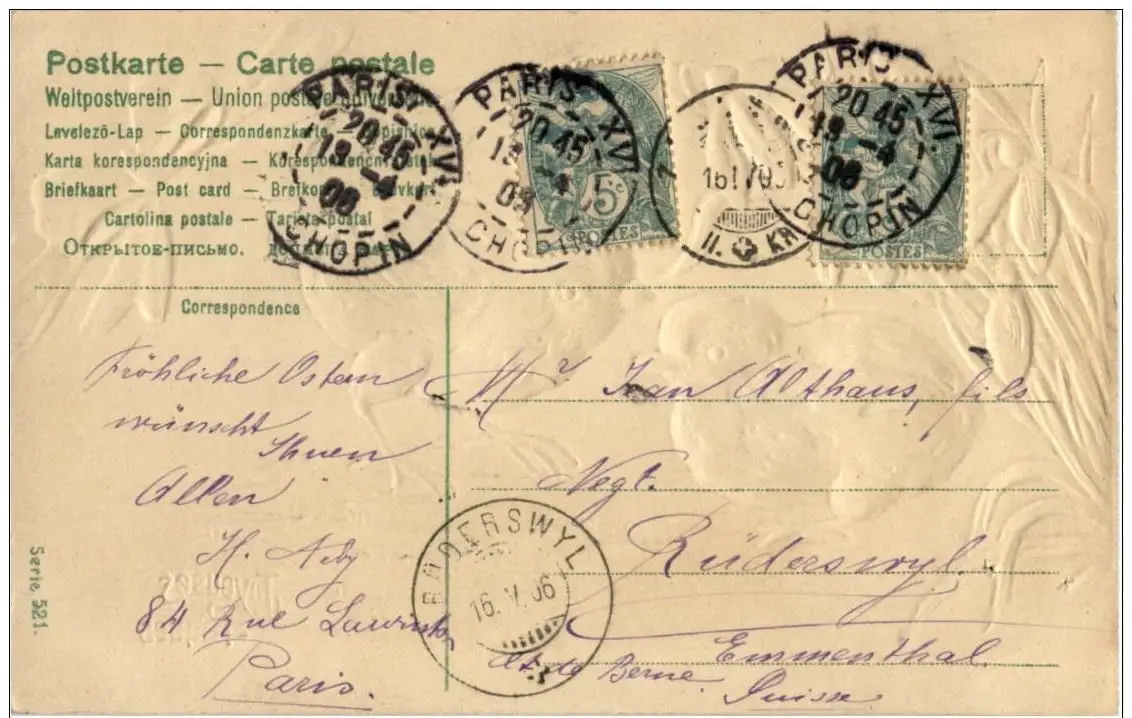 Postkarte — Carte postale
Weltpostverein — Union postale universelle
Levelező-Lap — Correspondenzkarte
Karta korespondencyjna — Korespondenční
Briefkaart — Post card —
Cartolina postale — Tarjeta postal
Открытое-письмо.
PARIS XVI
20 45
19 -4
06
CHOPIN
PARIS XVI
20 45
-4
5c
POSTES
II. KR
PARIS XVI.
20 45
19 -4
06
CHOPIN
POSTES
Correspondence
Fröhliche Ostern
wünscht
Ihnen
Allen
H. Aeby
84 Rue
Paris.
Mr Jean Althaus, fils
Negt.
Rüderswyl
Emmenthal
Ct de Berne
Suisse
RÜDERSWYL
16. V. 06
Serie 521.